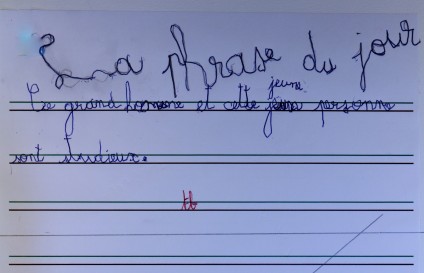 La phrase du jour
Ce grand homme et cette jeune personne
sont studieux.
tb